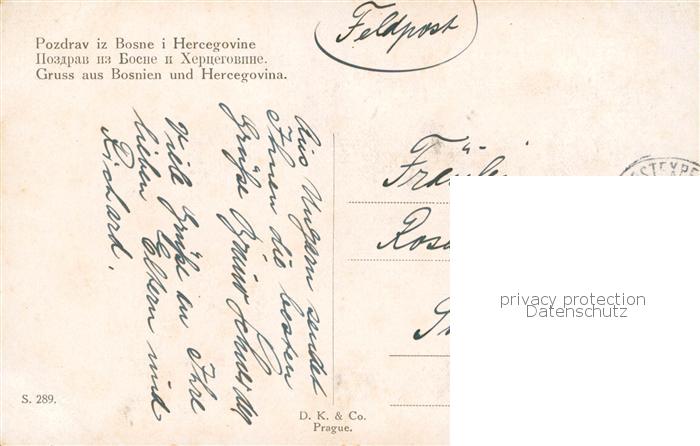 Pozdrav iz Bosne i Hercegovine
Поздрав из Босне и Херцеговине.
Gruss aus Bosnien und Hercegovina.
Feldpost
Aus Ungarn sendet
Ihnen die besten
Grüße
Viele Grüße an Ihre
lieben Eltern und
Richard.
Fräulei
Rosa
privacy protection
Datenschutz
S. 289.
D. K. & Co.
Prague.